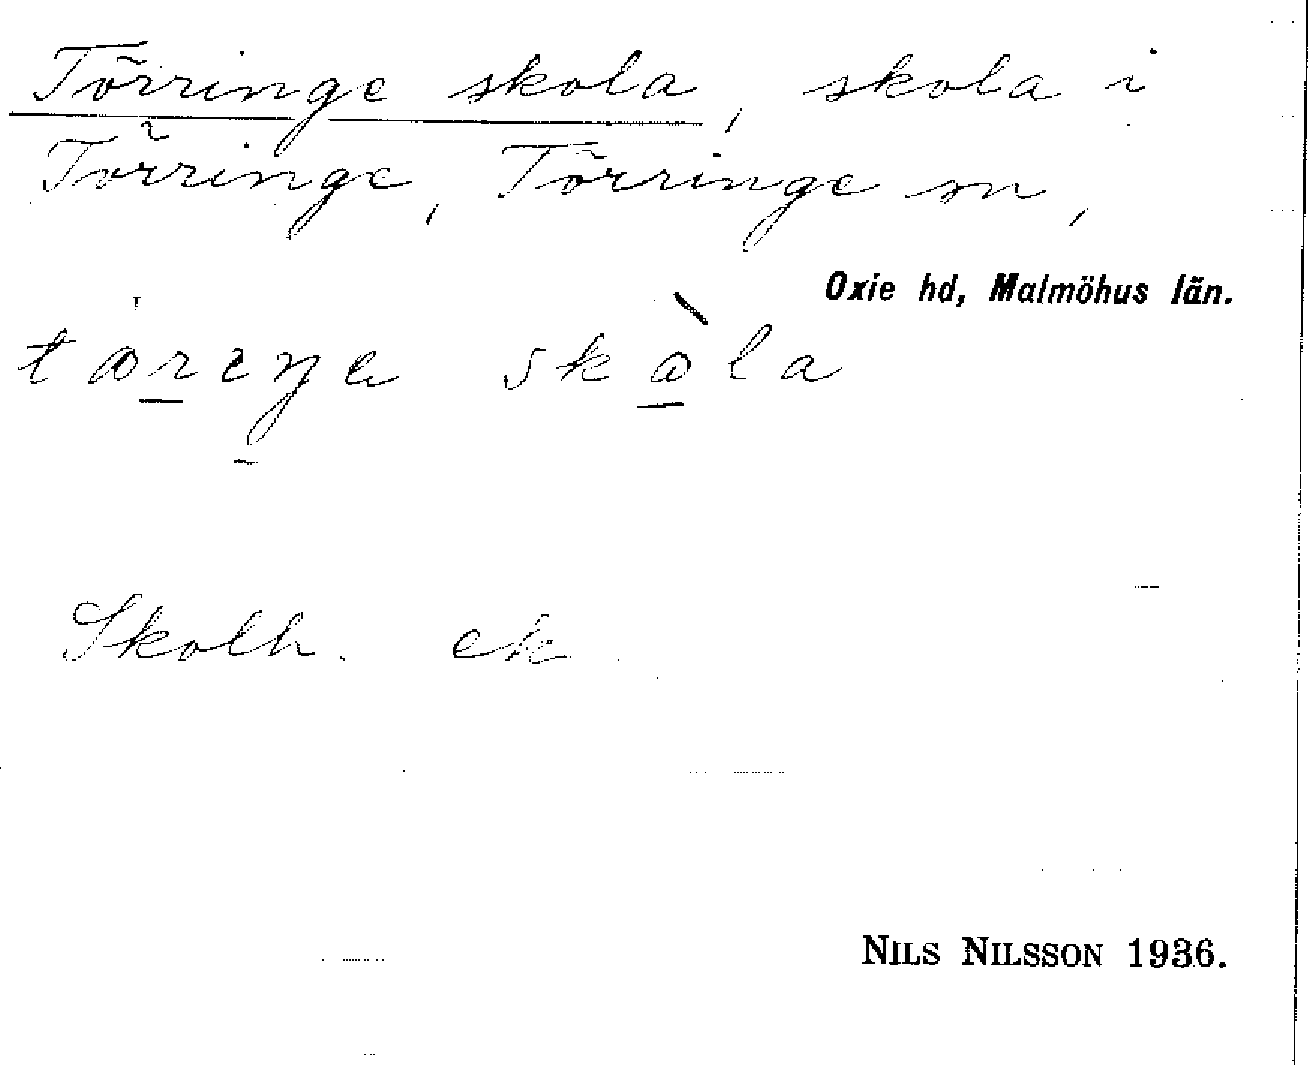 Törringe skola, skola i
Törringe, Törringe sn,
Oxie hd, Malmöhus län.
skòla
Skolh. ek.
NILS NILSSON 1936.